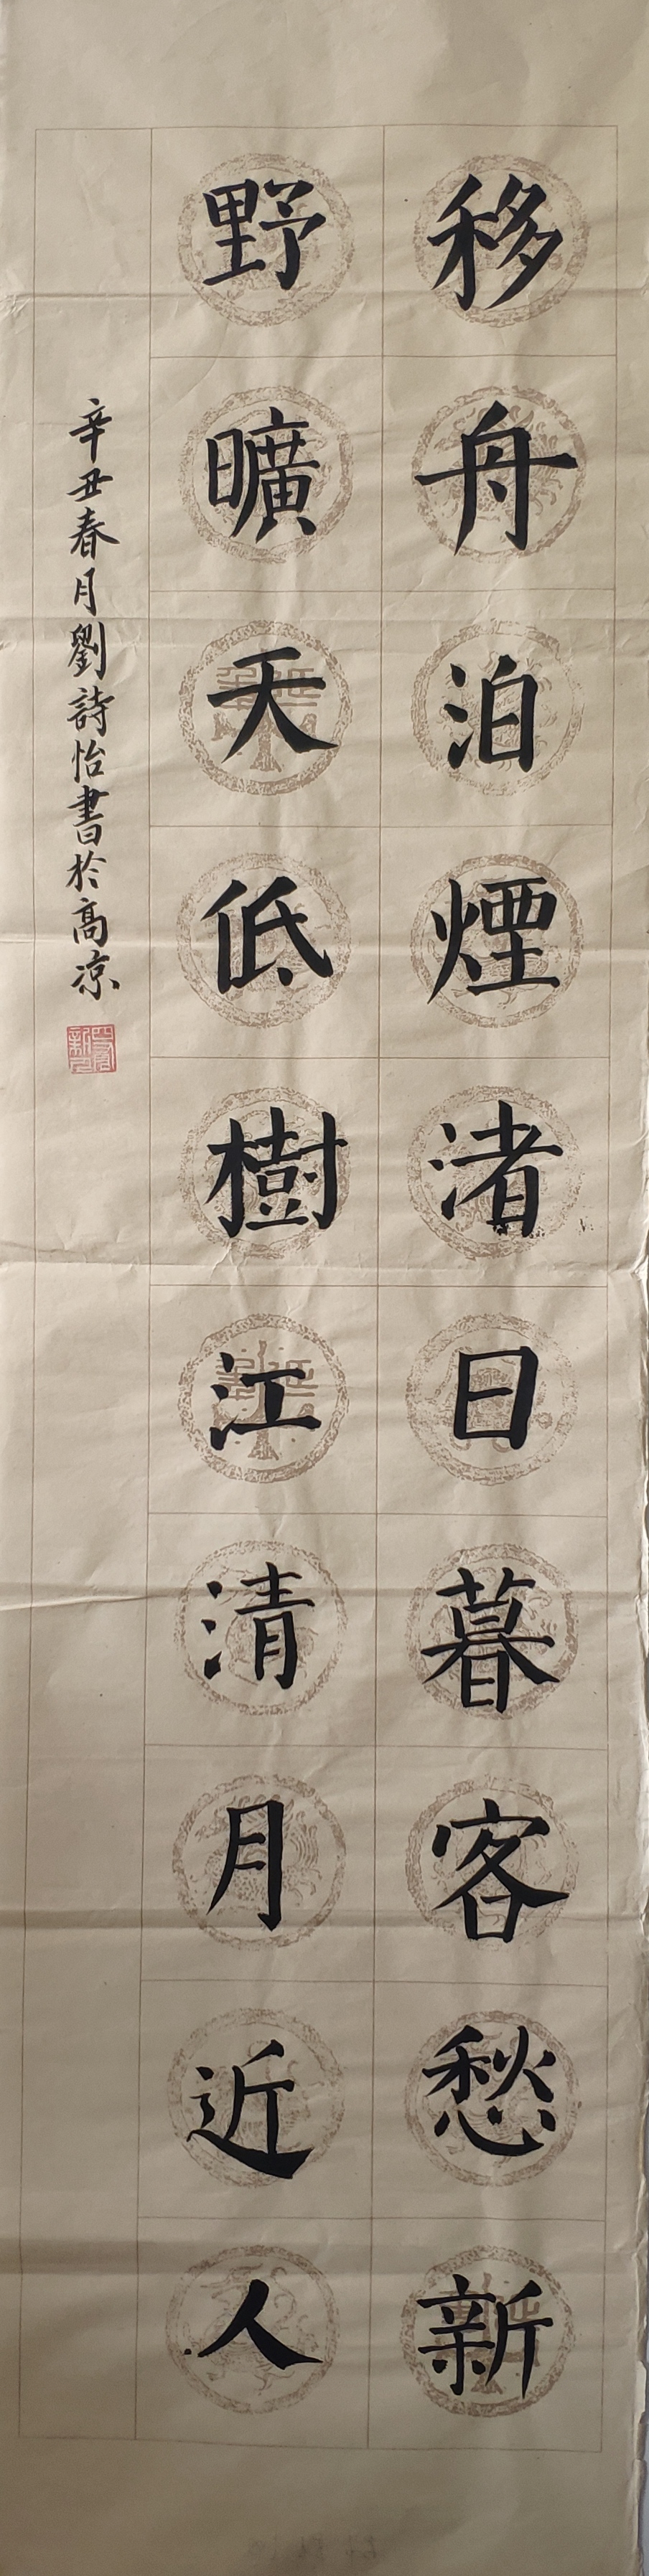 移舟泊煙渚日暮客愁新
野曠天低樹江清月近人
辛丑春月劉詩怡書於高凉